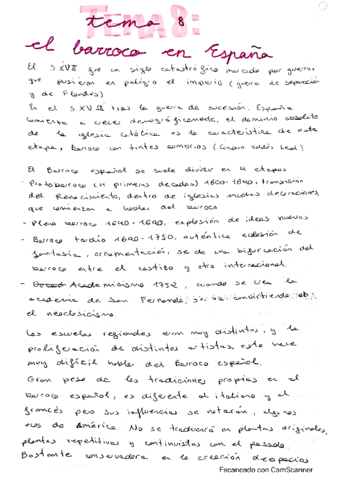 tema 8:
el barroco en España
El S XVII fue un siglo catastrófico marcado por guerras
que pusieron en peligro el imperio (guerra de separación
y de Flandes)
En el S XVIII tras la guerra de sucesión, España
comienza a crecer demográficamente, el dominio absoluto
de la iglesia católica es la característica de esta
etapa, barroco con tintes sombrios (Valdés Leal)
El Barroco español se suele dividir en 4 etapas
- Protobarroco (4 primeras décadas) 1600-1640, transición
del Renacimiento, dentro de iglesias decoraciones,
que comienzan a hablar del barroco
- Pleno barroco 1640-1690, explosión de ideas nuevas
- Barroco tardío 1690-1750, auténtica eclosión de
fantasía, ornamentación, se da una bifurcación del
barroco entre el castizo y otro internacional.
- Academicismo 1752, cuando se crea la
academia de San Fernando, se va convirtiendo en
el neoclasicismo.
Las escuelas regionales eran muy distintas, y la
proliferación de distintos artistas, esto hace
muy difícil hablar del Barroco español.
Gran peso de las tradiciones propias en el
barroco español, es diferente al italiano y al
francés pero sus influencias se notarán, algunos
de América No se traducirá en plantas originales,
plantas repetitivas y continuistas con el pasado.
Bastante conservadora en la creación de espacios
Escaneado con CamScanner